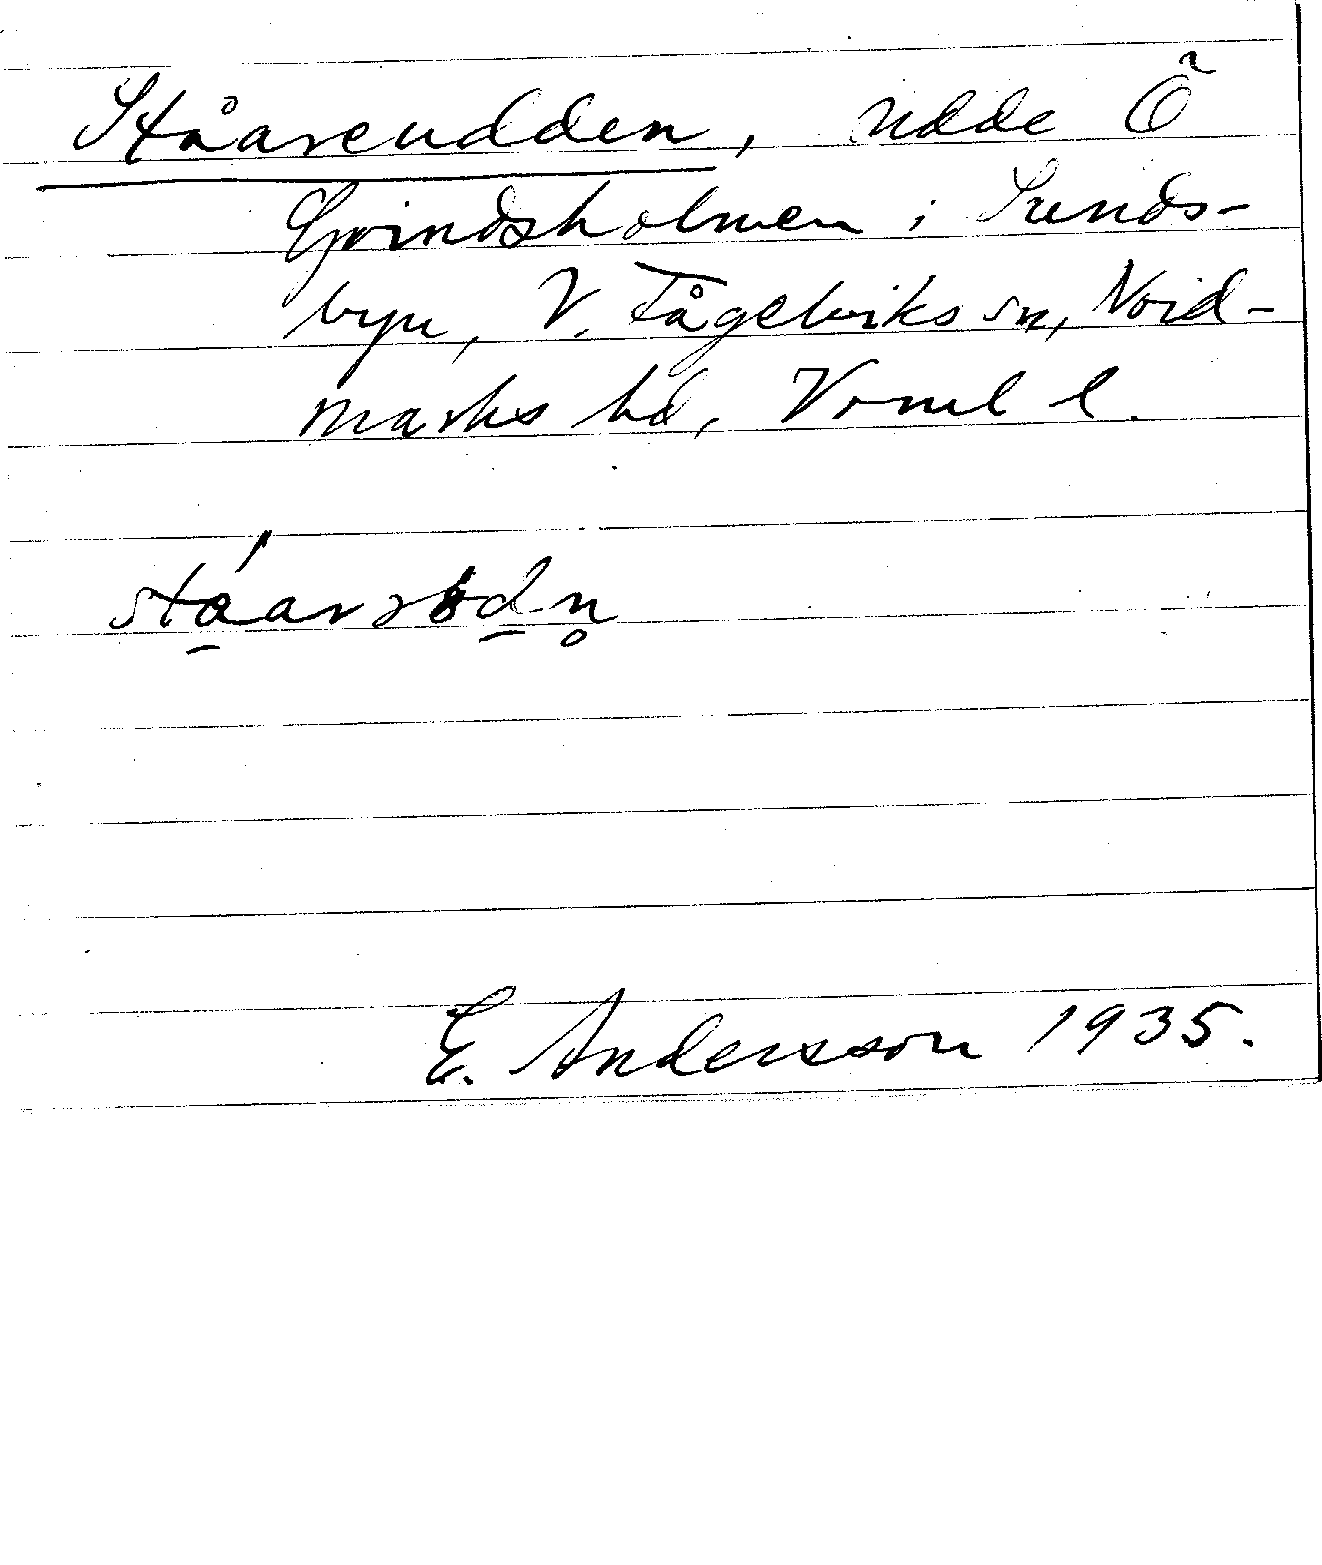 Ståareudden, udde Ö
Grindsholmen i Sunds-
byn, V. Fågelviks sn, Nord-
marks hd, Vrml l.
E. Andersson 1935.